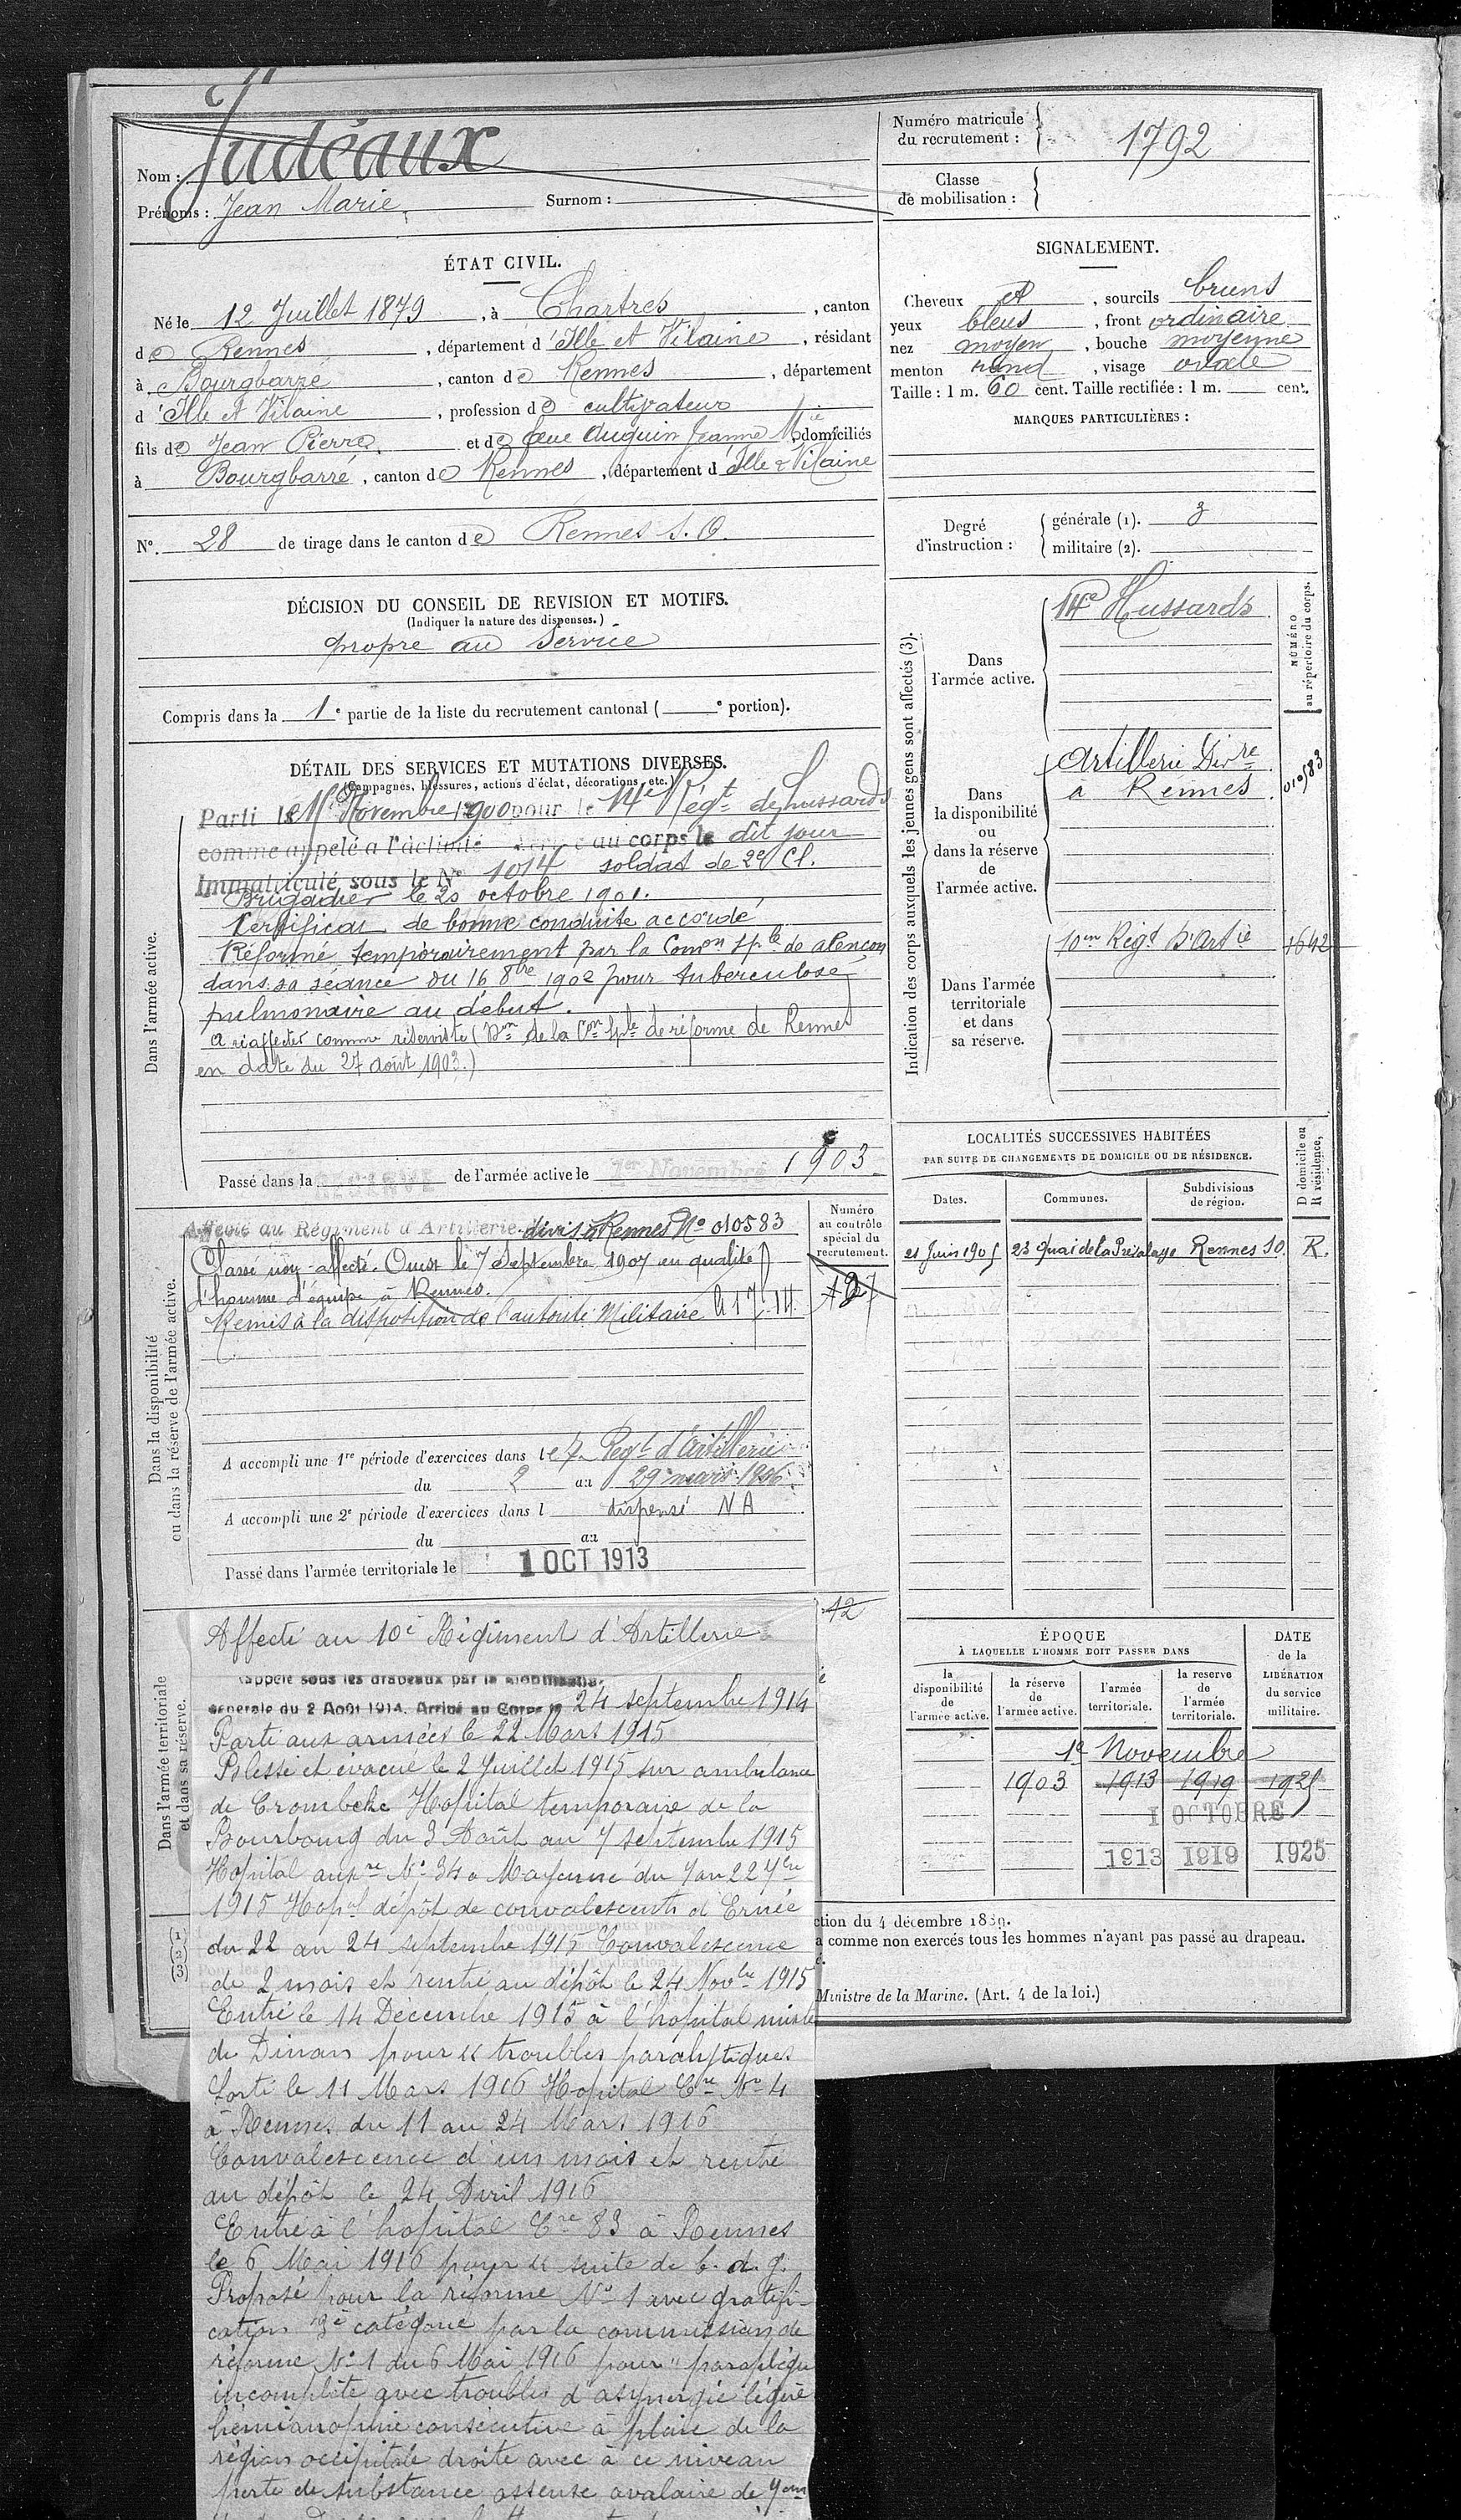 Nom : Judéaux
Prénoms : Jean Marie, Surnom :
Numéro matricule du recrutement : 1792
Classe de mobilisation :
ÉTAT CIVIL.
Né le 12 Juillet 1879, à Chartres, canton
de Rennes, département d'Ille et Vilaine, résidant
à Bourgbarré, canton de Rennes, département
d'Ille et Vilaine, profession de cultivateur
fils de Jean Pierre et de feue Auguin Jeanne Mie, domiciliés
à Bourgbarré, canton de Rennes, département d'Ille & Vilaine
N°. 28 de tirage dans le canton de Rennes S. O.
SIGNALEMENT.
Cheveux et, sourcils bruns
yeux bleus, front ordinaire
nez moyen, bouche moyenne
menton rond, visage ovale
Taille : 1 m. 60 cent. Taille rectifiée : 1 m. cent.
MARQUES PARTICULIÈRES :
Degré d'instruction : générale (1). 3
militaire (2).
DÉCISION DU CONSEIL DE REVISION ET MOTIFS.
(Indiquer la nature des dispenses.)
propre au service
Compris dans la 1e partie de la liste du recrutement cantonal ( e portion).
DÉTAIL DES SERVICES ET MUTATIONS DIVERSES.
(Campagnes, blessures, actions d'éclat, décorations, etc.)
Dans l'armée active.
Parti le Novembre 1900 pour le 14e Régt de hussards
comme appelé à l'activité au corps le dit jour
Immatriculé sous le N° 1014 soldat de 2e Cl.
Brigadier le 20 octobre 1901.
Certificat de bonne conduite accordé
Réformé temporairement par la Comon sple de alençon
dans sa séance du 16 8bre 1902 pour tuberculose
pulmonaire au début.
A réaffecter comme réserviste (Don de la Con sple de réforme de Rennes
en date du 27 août 1903.)
Passé dans la RÉSERVE de l'armée active le 1er Novembre 1903
Indication des corps auxquels les jeunes gens sont affectés (3).
NUMÉRO au répertoire du corps.
Dans l'armée active.
14e Hussards
Dans la disponibilité ou dans la réserve de l'armée active.
Artillerie Divre
à Rennes
010583
Dans l'armée territoriale et dans sa réserve.
10em Régt d'Artie
1642
LOCALITÉS SUCCESSIVES HABITÉES
PAR SUITE DE CHANGEMENTS DE DOMICILE OU DE RÉSIDENCE.
Dates. Communes. Subdivisions de région. D domicile ou R résidence,
21 Juin 1905 23 quai de la Prévalaye Rennes SO. R.
Dans la disponibilité ou dans la réserve de l'armée active.
Numéro au contrôle spécial du recrutement.
Affecté au Régiment d'Artillerie divis à Rennes N° 010583
Classé non-affecté. Ouest le 7 Septembre 1907 en qualité
d'homme d'équipe à Rennes.
Remis à la disposition de l'autorité Militaire
A accompli une 1re période d'exercices dans le 7e Régt d'artillerie
du 2 au 29 mars 1906
A accompli une 2e période d'exercices dans l dispensé NA
du au
Passé dans l'armée territoriale le 1 OCT 1913
Dans l'armée territoriale et dans sa réserve.
12
Affecté au 10e Régiment d'Artillerie
Rappelé sous les drapeaux par la mobilisation
générale du 2 Août 1914. Arrivé au Corps le 24 septembre 1914
Parti aux armées le 22 Mars 1915
Blessé et évacué le 2 Juillet 1915 sur ambulance
de Crombeke Hopital temporaire de la
Bourbourg du 3 Août au 7 septembre 1915
Hopital aupre N° 34 à Mayenne du 7 au 22 7bre
1915 Hopal dépôt de convalescents d'Ernée
du 22 au 24 septembre 1915 Convalescence
de 2 mois et rentré au dépôt le 24 Novbre 1915
Entré le 14 Décembre 1915 à l'hopital mixte
de Dinan pour « troubles paralytiques
Sorti le 11 Mars 1916 Hopital Cre N° 4
à Rennes du 11 au 24 Mars 1916
Convalescence d'un mois et rentré
au dépôt le 24 Avril 1916
Entré à l'hopital Cre 83 à Rennes
le 6 Mai 1916 pour « suite de b. d. g.
Proposé pour la réforme N° 1 avec gratifi-
cation 3e catégorie par la commission de
réforme N° 1 du 6 Mai 1916 pour « paraplégie
incomplète avec troubles d'asynergie légère
hémianopsie consécutive à plaie de la
région occipitale droite avec à ce niveau
perte de substance osseuse ovalaire de
ÉPOQUE
À LAQUELLE L'HOMME DOIT PASSER DANS
DATE de la LIBÉRATION du service militaire.
la disponibilité de l'armée active. la réserve de l'armée active. l'armée territoriale. la reserve de l'armée territoriale.
1e Novembre
1903 1913 1919 1925
1 OCTOBRE
1913 1919 1925
(1)
(2)
(3)
ction du 4 décembre 1889.
a comme non exercés tous les hommes n'ayant pas passé au drapeau.
Ministre de la Marine. (Art. 4 de la loi.)